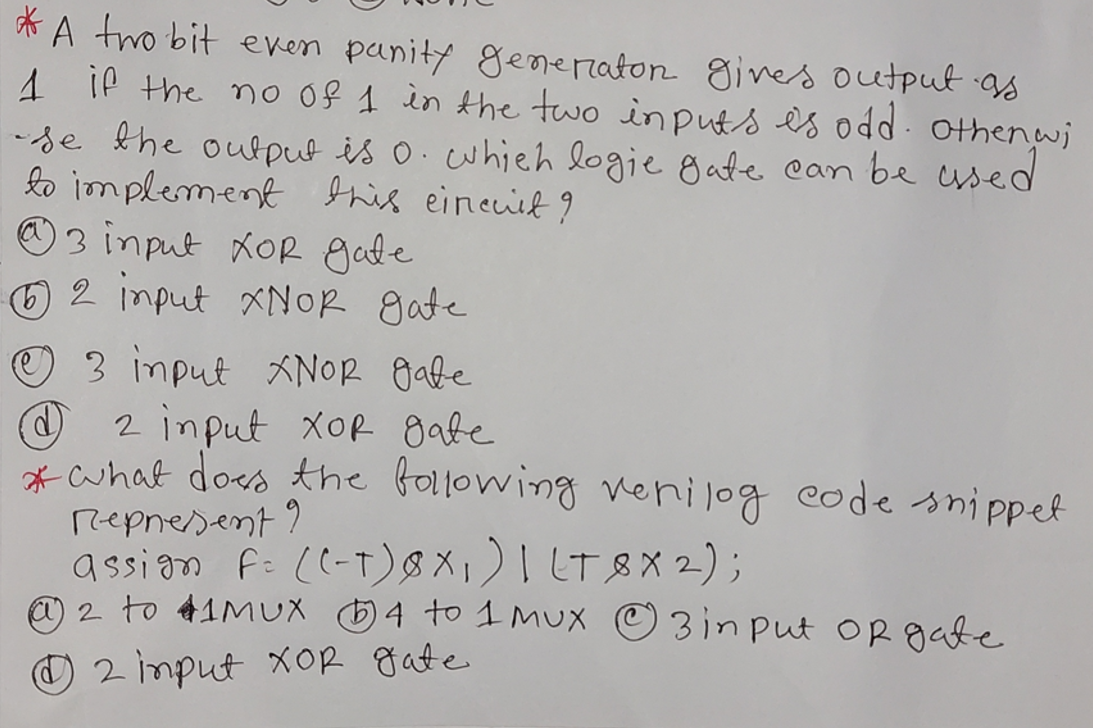 * A two bit even parity generator gives output as
1 if the no of 1 in the two inputs is odd. Otherwi
-se the output is 0. which logic gate can be used
to implement this circuit?
(a) 3 input XOR gate
(b) 2 input XNOR gate
(c) 3 input XNOR gate
(d) 2 input XOR gate
* What does the following verilog code snippet
represent?
assign f= ((-T)&X1) | (T&X2);
(a) 2 to 1 MUX (b) 4 to 1 MUX (c) 3 input OR gate
(d) 2 input XOR gate